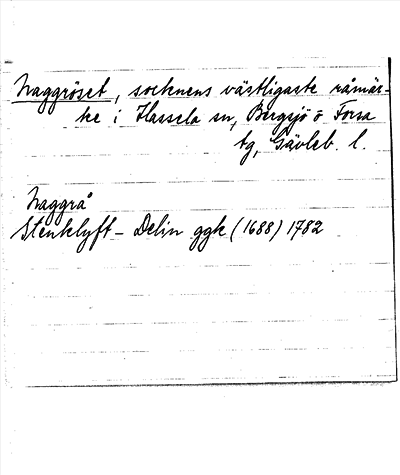 Naggröset, socknens västligaste råmär-
ke i Hassela sn, Bergsjö o Forsa
tg, Gävleb. l.
Naggrå
Stenklyft - Delin ggk (1688) 1782